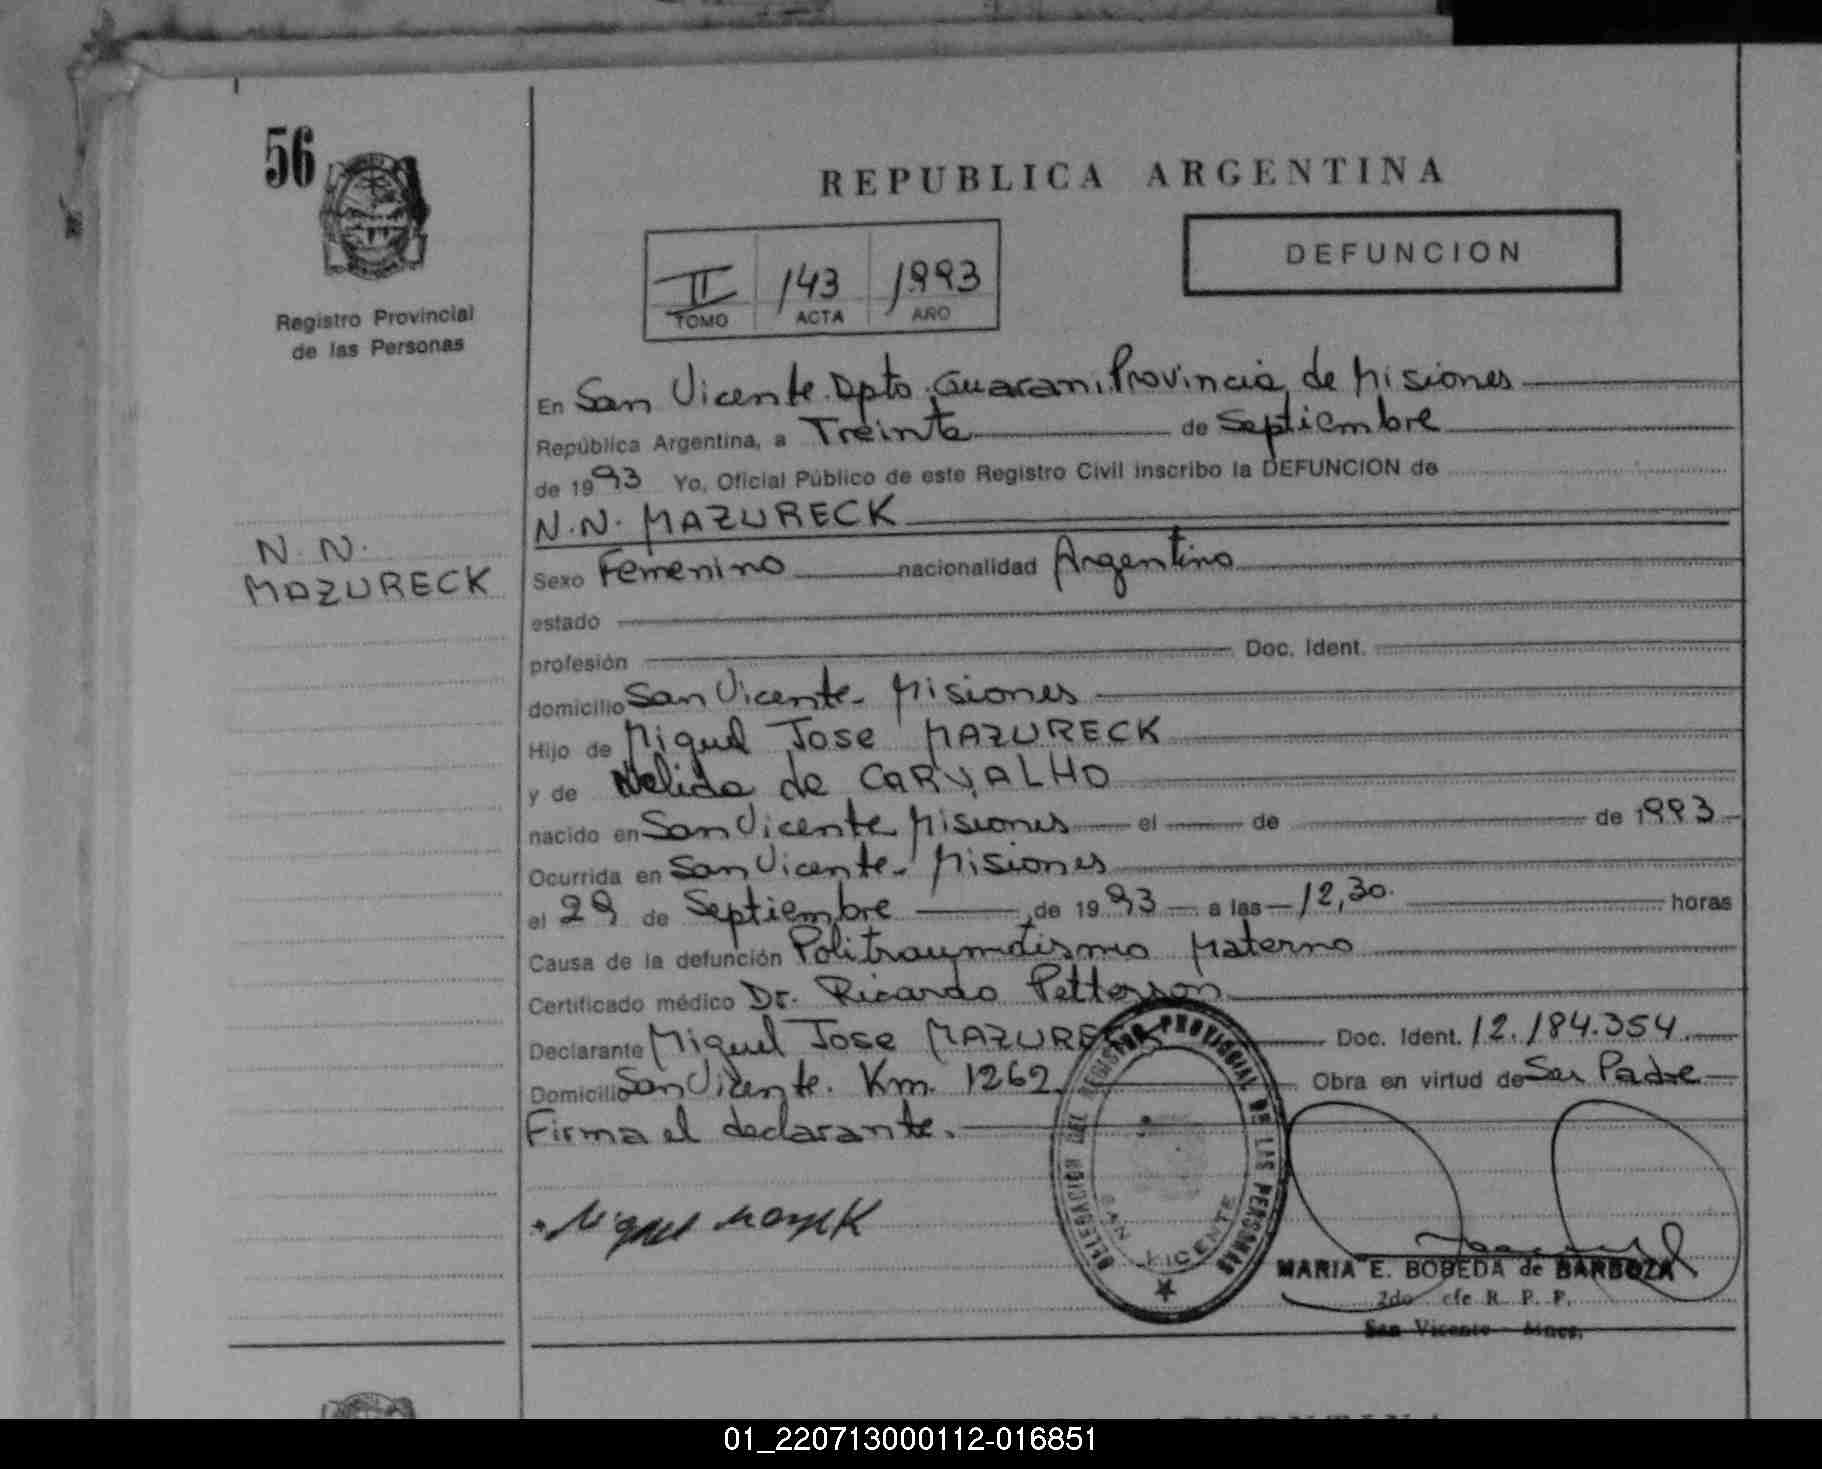 56
REPUBLICA ARGENTINA
DEFUNCION
II 143 1993
TOMO ACTA AÑO
Registro Provincial
de las Personas
N. N.
MAZURECK
En San Vicente. Dpto. Guarani, Provincia de Misiones
República Argentina, a Treinta de Septiembre
de 1993 Yo, Oficial Público de este Registro Civil inscribo la DEFUNCION de
N.N. MAZURECK
Sexo Femenino nacionalidad Argentino
estado
profesión Doc. Ident.
domicilio San Vicente - Misiones
Hijo de Miguel Jose MAZURECK
y de Nelida de CARVALHO
nacido en San Vicente Misiones el de de 1993
Ocurrida en San Vicente - Misiones
el 29 de Septiembre de 1993 a las 12,30. horas
Causa de la defunción Politraumatismo Materno
Certificado médico Dr. Ricardo Petterson
Declarante Miguel Jose MAZURECK Doc. Ident. 12.184.354
Domicilio San Vicente. Km. 1262. Obra en virtud de Ser Padre
Firma el declarante.
DELEGACION DEL REGISTRO PROVINCIAL DE LAS PERSONAS
SAN VICENTE
MARIA E. BOBEDA de BARBOZA
2do R. P. P.
San Vicente - Mnes.
01_220713000112-016851